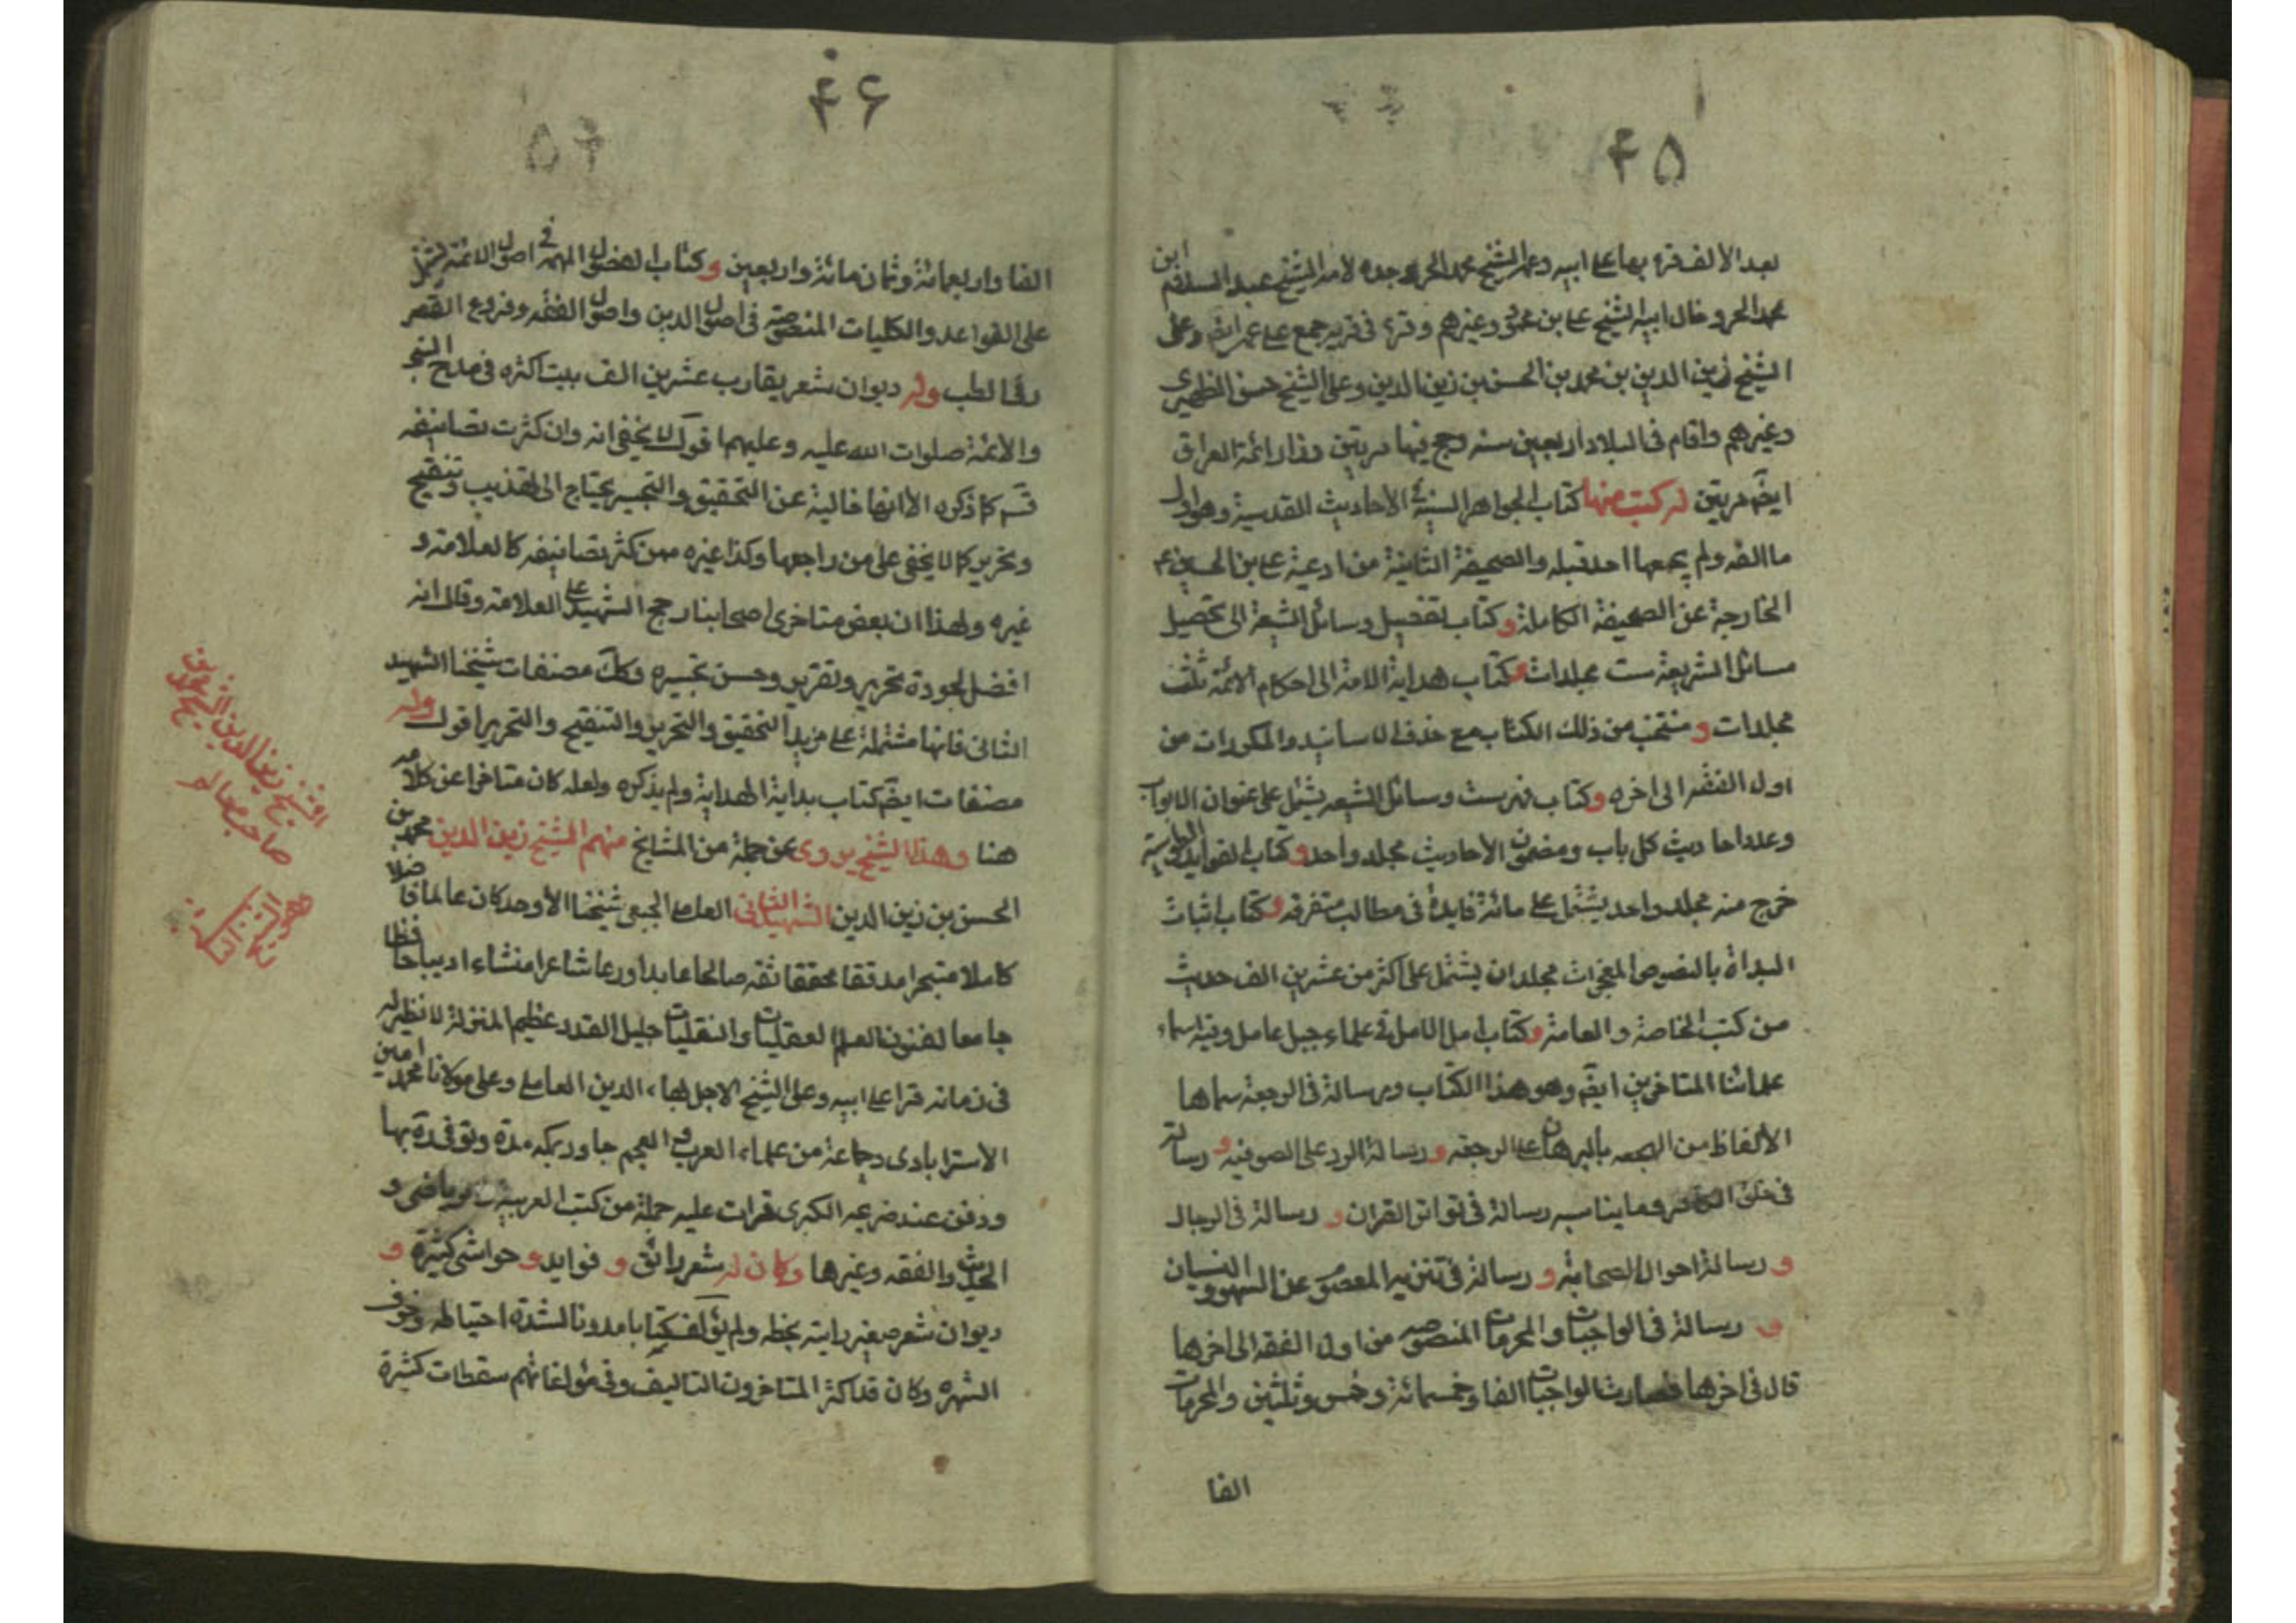 ۴۵
بعد الألف قرء بها على ابيه وعمه الشيخ محمد الحر وجده لأمه الشيخ عبد السلام ابن
محمد الحر وخال ابيه الشيخ على بن محمود وغيرهم وقرء فى قرية جبع على عمه ايضا وعلى
الشيخ زين الدين بن محمد بن الحسن بن زين الدين وعلى الشيخ حسن الظهيرى
وغيرهم واقام فى البلاد اربعين سنه وحج فيها مرتين وزار ائمة العراق
ايضً مرتين له كتب منها كتاب الجواهر السنية فى الأحاديث القدسية وهو اول
ما الفه ولم يجمعها احد قبله والصحيفة الثانية من ادعية على بن الحسين ع
الخارجة عن الصحيفة الكاملة وكتاب تفصيل وسائل الشيعة الى تحصيل
مسائل الشريعة ست مجلدات وكتاب هداية الامة الى احكام الائمة ثلث
مجلدات و منتخب من ذلك الكتاب مع حذف الاسانيد والمكررات من
اول الفقه الى اخره وكتاب فهرست وسائل الشيعه يشتمل على عنوان الابواب
وعدد احاديث كل باب ومضمون الأحاديث مجلد واحد وكتاب الفوايد الطوسية
خرج منه مجلد واحد يشتمل على مائة فايدة فى مطالب متفرقه وكتاب اثبات
الهداة بالنصوص والمعجزات مجلدان يشتمل على اكثر من عشرين الف حديث
من كتب الخاصة والعامة وكتاب امل الامل فى علماء جبل عامل وفيه اسماء
علمائنا المتاخرين ايضً وهو هذا الكتاب ورسالة فى الرجعة سماها
الأيقاظ من الهجعه بالبرهان على الرجعه و رسالة الرد على الصوفيه و رسالة
فى خلق الكافر وما يناسبه رسالة فى تواتر القران و رسالة فى الرجال
و رسالة احوال الصحابة و رسالة فى تنزيه المعصوم عن السهو والنسيان
و رسالة فى الواجبات والمحرمات المنصوصه من اول الفقه الى اخرها
قال فى اخرها فصارت الواجبات الفا وخمسمائة وخمس وثلثين والمحرمات
الفا
۴۶
الفا واربعمائة وثمان مائة واربعين وكتاب الفصول المهمه فى اصول الائمة تشتمل
على القواعد والكليات المنصوصه فى اصول الدين واصول الفقه وفروع الفقه
وفى الطب وله ديوان شعر يقارب عشرين الف بيت اكثره فى مدح النبى
والأئمة صلوات الله عليه وعليهم اقول لا يخفى انه وان كثرت تصانيفه
قدس كما ذكره الا انها خالية عن التحقيق والتحبير يحتاج الى تهذيب وتنقيح
وتحرير كما لا يخفى على من راجعها وكذا غيره ممن كثر تصانيفه كالعلامة و
غيره ولهذا ان بعض متاخرى اصحابنا رجح الشهيد على العلامة وقال انه
افضل لجودة تحريره وتقريره وحسن تحبيره وكك مصنفات شيخنا الشهيد
الثانى فانها مشتملة على مزيد التحقيق والتحرير والتنقيح والتحرير اقول وله
مصنفات ايضً كتاب بداية الهداية ولم يذكره ولعله كان متاخرا عن كلامه
هنا وهذا الشيخ يروى عن جملة من المشايخ منهم الشيخ زين الدين محمد بن
الحسن بن زين الدين الشهيد الثانى العاملى الجبعى شيخنا الأوحد كان عالما فاضلا
كاملا متبحرا مدققا محققا ثقه صالحا عابدا ورعا شاعرا منشاء اديبا حافظا
جامعا لفنون العلم العقليات والنقليات جليل القدر عظيم المنزلة لا نظير له
فى زمانه قرا على ابيه وعلى الشيخ الاجل بهاء الدين العاملى وعلى مولانا محمد امين
الأسترابادى وجماعة من علماء العرب والعجم جاور بمكه مدة وتوفى بها
ودفن عند خديجه الكبرى قرات عليه جملة من كتب العربية والرياضى و
الحديث والفقه وغيرها وكان له شعر رائق و فوايد و حواشى كثيرة و
ديوان شعر صغير رايته بخطه ولم يؤلف كتابا مدونا لشدة احتياطه وخوف
الشهره وكان قد اكثر المتاخرون التاليف وفى مؤلفاتهم سقطات كثيرة